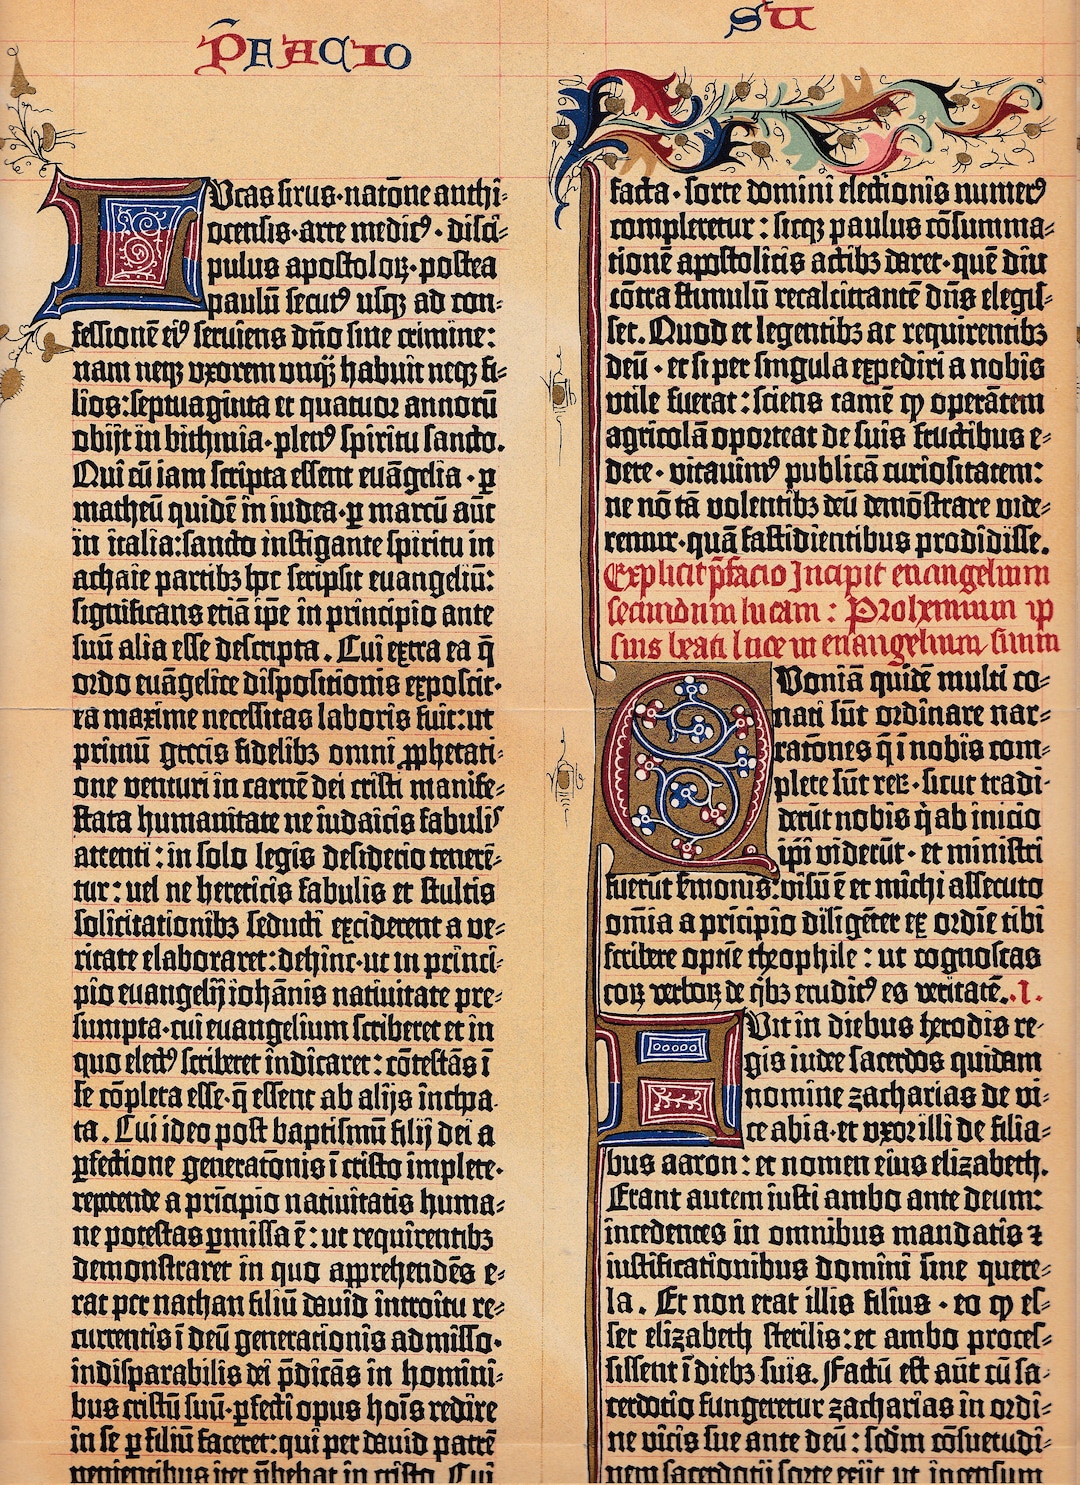 P̃AACIO
LUcas sirus·natōne anthi-
ocensis·arte medicꝰ·disci-
pulus apostoloꝝ·postea
paulū secutꝰ usqꝫ ad con-
fessionē eiꝰ serviens dn̄o sine crimine:
nam neqꝫ vxorem unq̄ȝ habuit neqꝫ fi-
lios:septuaginta et quatuor annorū
obijt in bithinia·plenꝰ spiritu sancto.
Qui cū iam scripta essent euāgelia·ꝑ
matheū quidē in iudea·ꝑ marcū aūt
in italia:sancto instigante spiritu in
achaie partibꝫ hoc scripsit euangeliū:
significans etiā ip̄e in principio ante
suū alia esse descripta. Cui extra ea q̄
ordo euāgelice dispositionis exposcit·
ea maxime necessitas laboris fuit:ut
primū grecis fidelibꝫ omni ꝓphetati-
one venturi in carnē dei cristi manife-
stata humanitate ne iudaicis fabulis
attenti:in solo legis desiderio tenerē-
tur:uel ne hereticis fabulis et stultis
solicitationibꝫ seducti exciderent a ve-
ritate elaboraret:dehinc·ut in princi-
pio euangelij iohānis nativitate pre-
sumpta·cui euangelium scriberet et in
quo electꝰ scriberet indicaret:cōtestās ī
se cōpleta esse·q̄ essent ab alijs inchoa-
ta. Cui ideo post baptismū filij dei a
ꝑfectione generatōnis ī cristo implete·
repetende a prīcipio natiuitatis huma-
ne potestas ꝑmissa ē:ut requirentibꝫ
demonstraret in quo apprehendēs e-
rat per nathan filiū dauid introitu re-
currentis ī deū generationis admisso·
indisparabilis dei p̄dicās in homini-
bus cristū suū·ꝑfecti opus hoīs redire
in se ꝑ filiū faceret:qui per dauid patrē
venientibus iter p̄bebat in cristo. Cui
SU
facta·sorte domini electionis numerꝰ
compleretur:sicqꝫ paulus cōsumma-
tionē apostolicis actibꝫ daret·quē diu
cōtra stimulū recalcitrantē dn̄s elegis-
set. Quod et legentibꝫ ac requirentibꝫ
deū·et si per singula expediri a nobis
utile fuerat:sciens tamē ꝙ operātem
agricolā oporteat de suis fructibus e-
dere·vitavimꝰ publicā curiositatem:
ne nō tā volentibꝫ deū demōstrare vide-
remur·quā fastidientibus prodidisse.
Explicit p̄facio Incipit euangelium
secundum lucam: Prohemium ip
sius beati luce in euangelium suum
QVoniā quidē multi co-
nati sūt ordinare nar-
ratōnes q̄ ī nobis com-
plete sūt reꝝ·sicut tradi-
derūt nobis q̇ ab inicio
ip̄i viderūt·et ministri
fuerūt s̄monis:visū ē et michi assecuto
om̄ia a prīcipio diligēter ex ordīe tibi
scribere optīe theophile:ut cognoscas
eoꝝ verboꝝ de q̇bꝫ eruditꝰ es veritatē. I.
FUit in diebus herodis re-
gis iudee sacerdos quidam
nomine zacharias de vi-
ce abia·et vxor illi de filia-
bus aaron:et nomen eius elizabeth.
Erant autem iusti ambo ante deum:
incedentes in omnibus mandatis ⁊
iustificationibus domini sine quere-
la. Et non erat illis filius·eo ꝙ es-
set elizabeth sterilis:et ambo proces-
sissent ī diebꝫ suis. Factū est aūt cū sa-
cerdotio fungeretur zacharias in ordi-
ne vicis sue ante deū:scdm̄ cōsuetudi-
nem sacerdotij sorte exijt ut incensum